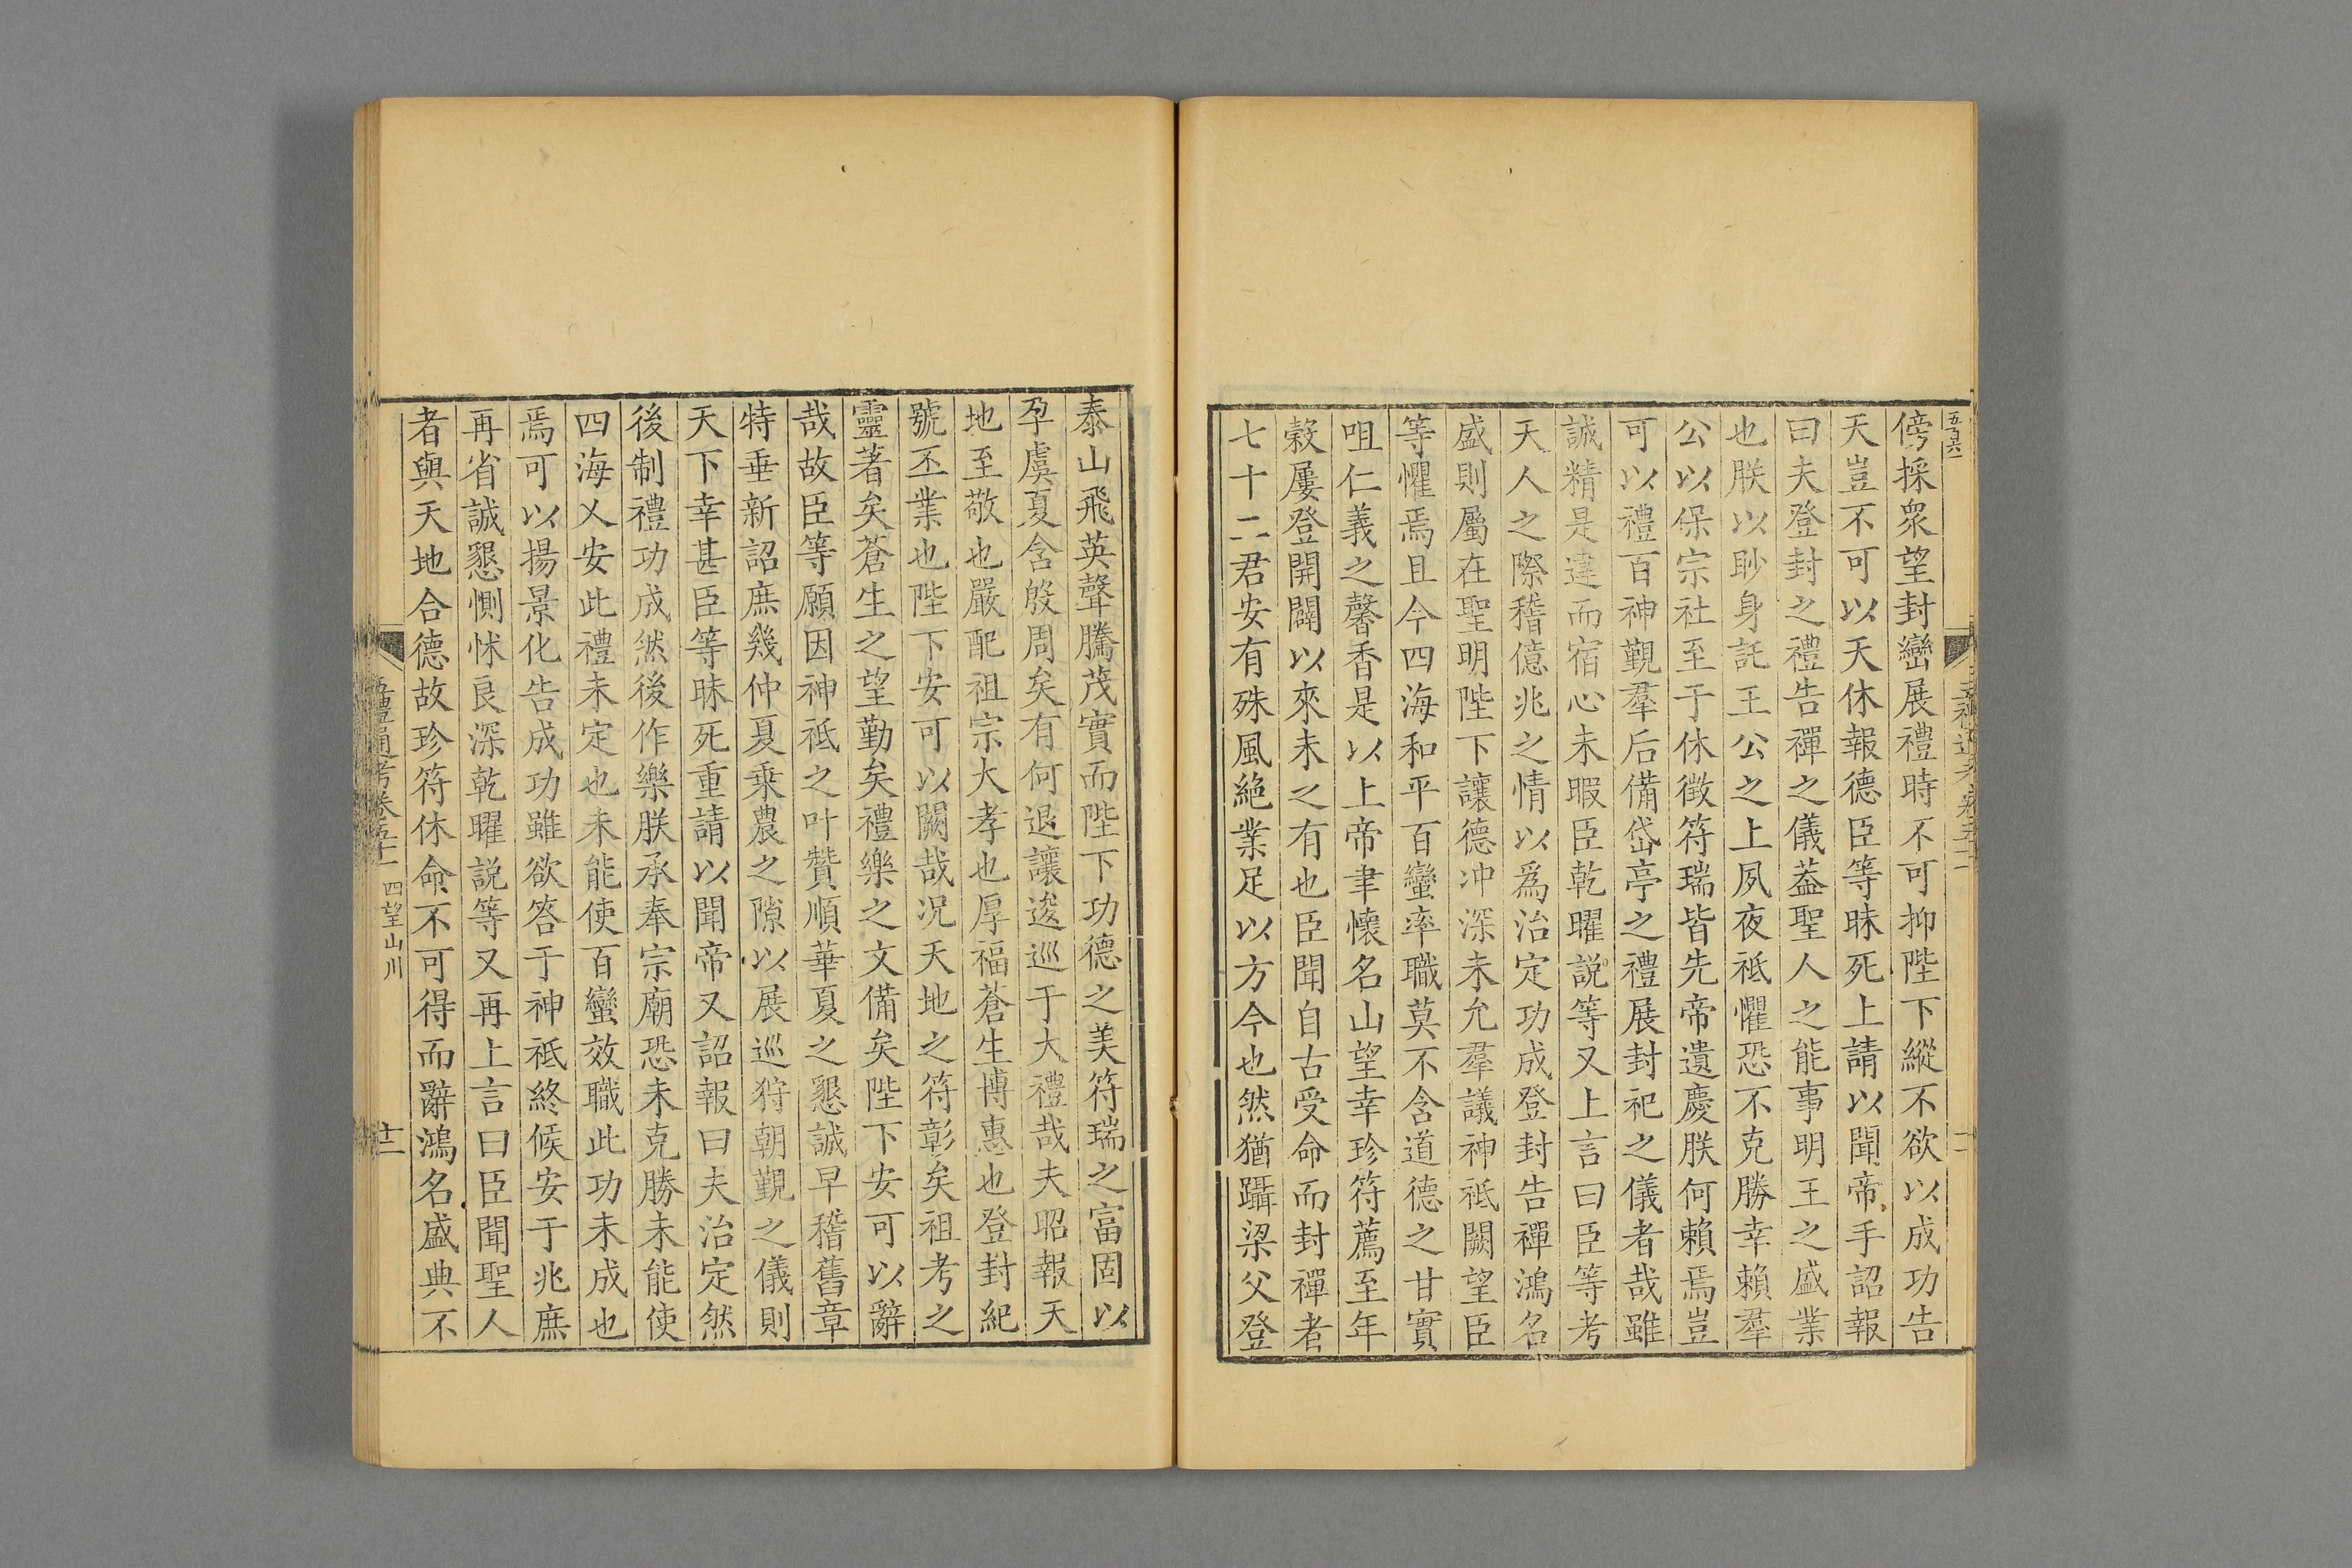 傍採衆望封巒展禮時不可抑陛下縱不欲以成功告
天豈不可以天休報德臣等昧死上請以聞帝手詔報
曰夫登封之禮告禪之儀葢聖人之能事明王之盛業
也朕以眇身託王公之上夙夜祗懼恐不克勝幸賴羣
公以保宗社至于休徵符瑞皆先帝遺慶朕何賴焉豈
可以禮百神覲羣后備岱亭之禮展封祀之儀者哉雖
誠精是違而宿心未暇臣乾曜說等又上言曰臣等考
天人之際稽億兆之情以爲治定功成登封告禪鴻名
盛則屬在聖明陛下讓德冲深未允羣議神祗闕望臣
等懼焉且今四海和平百蠻率職莫不含道德之甘實
咀仁義之馨香是以上帝聿懷名山望幸珍符薦至年
榖屢登開闢以來未之有也臣聞自古受命而封禪者
七十二君安有殊風絶業足以方今也然猶躡梁父登
泰山飛英聲騰茂實而陛下功德之美符瑞之富固以
孕虞夏含殷周矣有何退讓逡巡于大禮哉夫昭報天
地至敬也嚴配祖宗大孝也厚福蒼生博惠也登封紀
號丕業也陛下安可以闕哉況天地之符彰矣祖考之
靈著矣蒼生之望勤矣禮樂之文備矣陛下安可以辭
哉故臣等願因神祗之叶贊順華夏之懇誠早稽舊章
特垂新詔庶幾仲夏乘農之隙以展巡狩朝覲之儀則
天下幸甚臣等昧死重請以聞帝又詔報曰夫治定然
後制禮功成然後作樂朕承奉宗廟恐未克勝未能使
四海乂安此禮未定也未能使百蠻效職此功未成也
焉可以揚景化告成功雖欲答于神祗終候安于兆庶
再省誠懇惻怵良深乾曜說等又再上言曰臣聞聖人
者與天地合德故珍符休命不可得而辭鴻名盛典不
五禮通考卷五十一 四望山川 十二